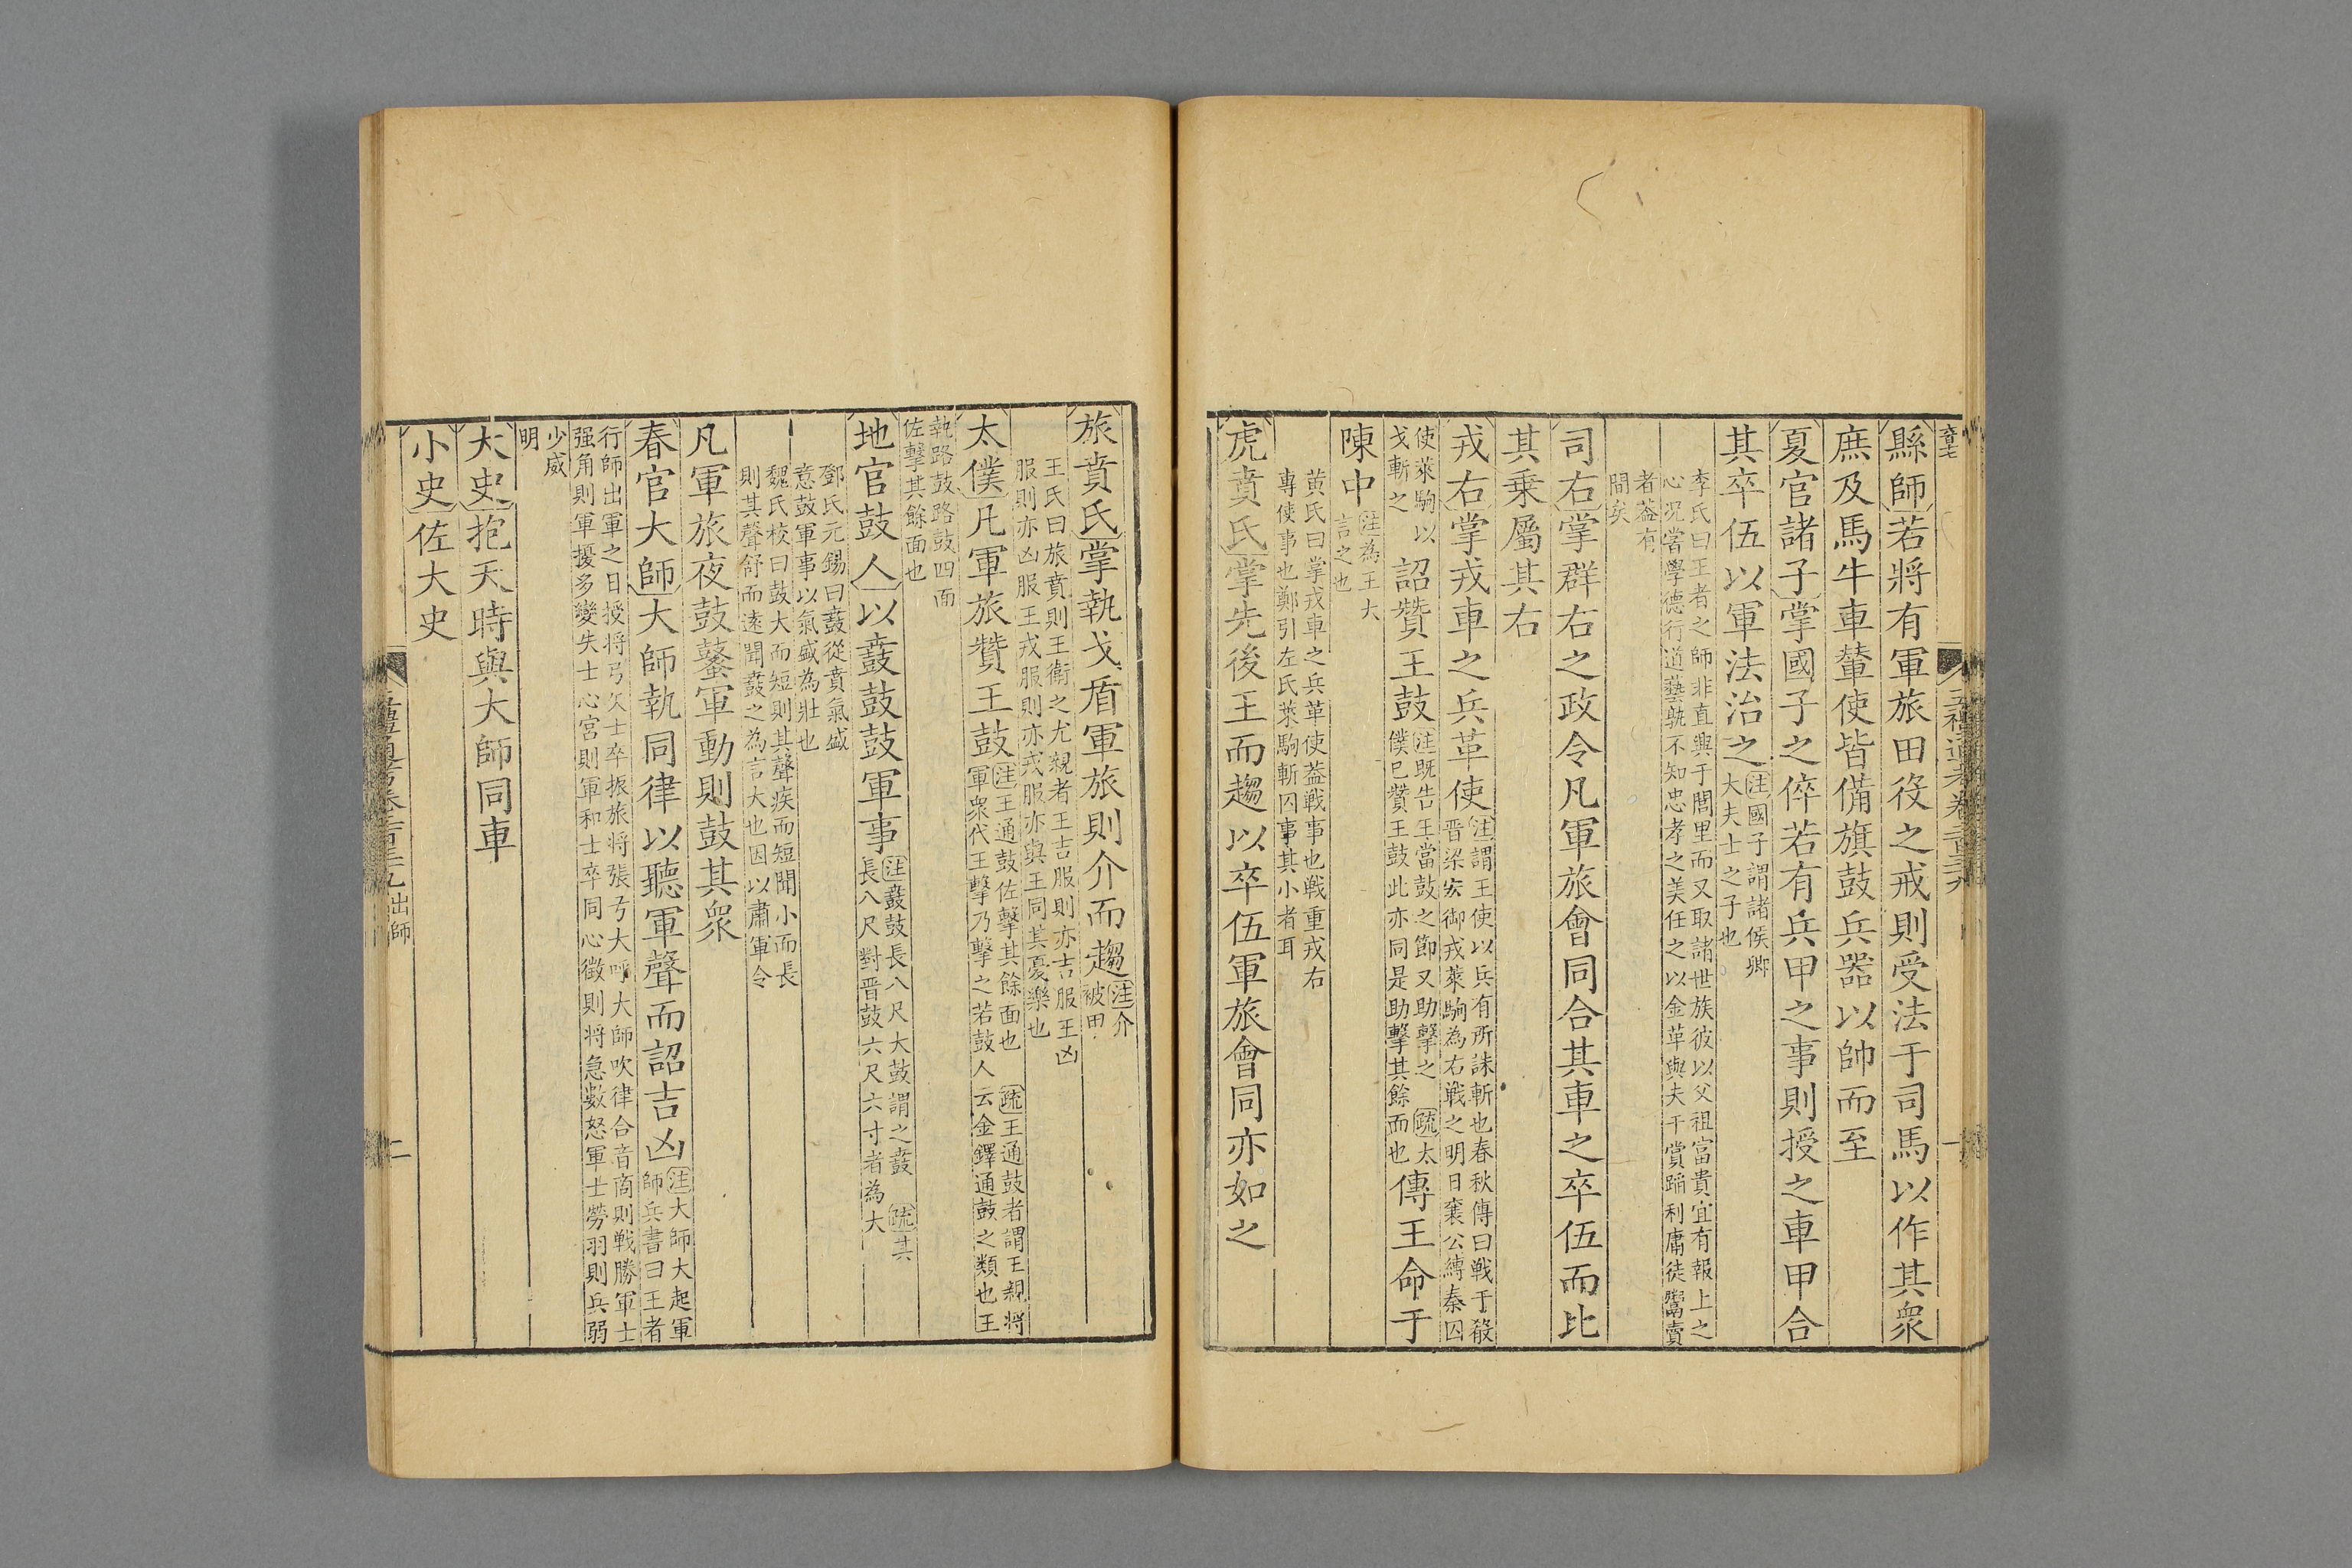 縣師若將有軍旅田役之戒則受法于司馬以作其衆
庶及馬牛車輦使皆備旗鼓兵器以帥而至
夏官諸子掌國子之倅若有兵甲之事則授之車甲合
其卒伍以軍法治之注國子謂諸侯卿
大夫士之子也
李氏曰王者之師非直興于閭里而又取諸世族彼以父祖富貴宜有報上之
心況嘗學德行道藝孰不知忠孝之美任之以金革與夫干賞蹈利庸徒鬻賣
者葢有
間矣
司右掌群右之政令凡軍旅會同合其車之卒伍而比
其乗屬其右
戎右掌戎車之兵革使注謂王使以兵有所誅斬也春秋傳曰戦于殽
晋梁宏御戎萊駒為右戦之明日襄公縛秦囚
使萊駒以
戈斬之
詔贊王鼓注既告王當鼓之節又助擊之 疏太
僕已贊王鼓此亦同是助擊其餘面也
傳王命于
陳中注為王大
言之也
黄氏曰掌戎車之兵革使葢戦事也戦重戎右
專使事也鄭引左氏萊駒斬囚事其小者耳
虎賁氏掌先後王而趨以卒伍軍旅會同亦如之
五禮通考卷二百三十九
一
旅賁氏掌執戈盾軍旅則介而趨注介
被甲
王氏曰旅賁則王衛之尤親者王吉服則亦吉服王凶
服則亦凶服王戎服則亦戎服亦與王同其憂樂也
太僕凡軍旅贊王鼓注王通鼓佐擊其餘面也 疏王通鼓者謂王親將
軍衆代王擊乃擊之若鼓人云金鐸通鼓之類也王
執路鼓路鼓四面
佐擊其餘面也
地官鼓人以鼖鼓鼓軍事注鼖鼓長八尺大鼓謂之鼖 疏其
長八尺對晋鼓六尺六寸者為大
鄧氏元錫曰鼖從賁氣盛
意鼓軍事以氣盛為壯也
魏氏校曰鼓大而短則其聲疾而短聞小而長
則其聲舒而遠聞鼖之為言大也因以肅軍令
凡軍旅夜鼓鼜軍動則鼓其衆
春官大師大師執同律以聽軍聲而詔吉凶注大師大起軍
師兵書曰王者
行師出軍之日授将弓矢士卒振旅将張弓大呼大師吹律合音商則戦勝軍士
强角則軍擾多變失士心宫則軍和士卒同心徵則将急數怒軍士勞羽則兵弱
少威
明
大史抱天時與大師同車
小史佐大史
出師
二